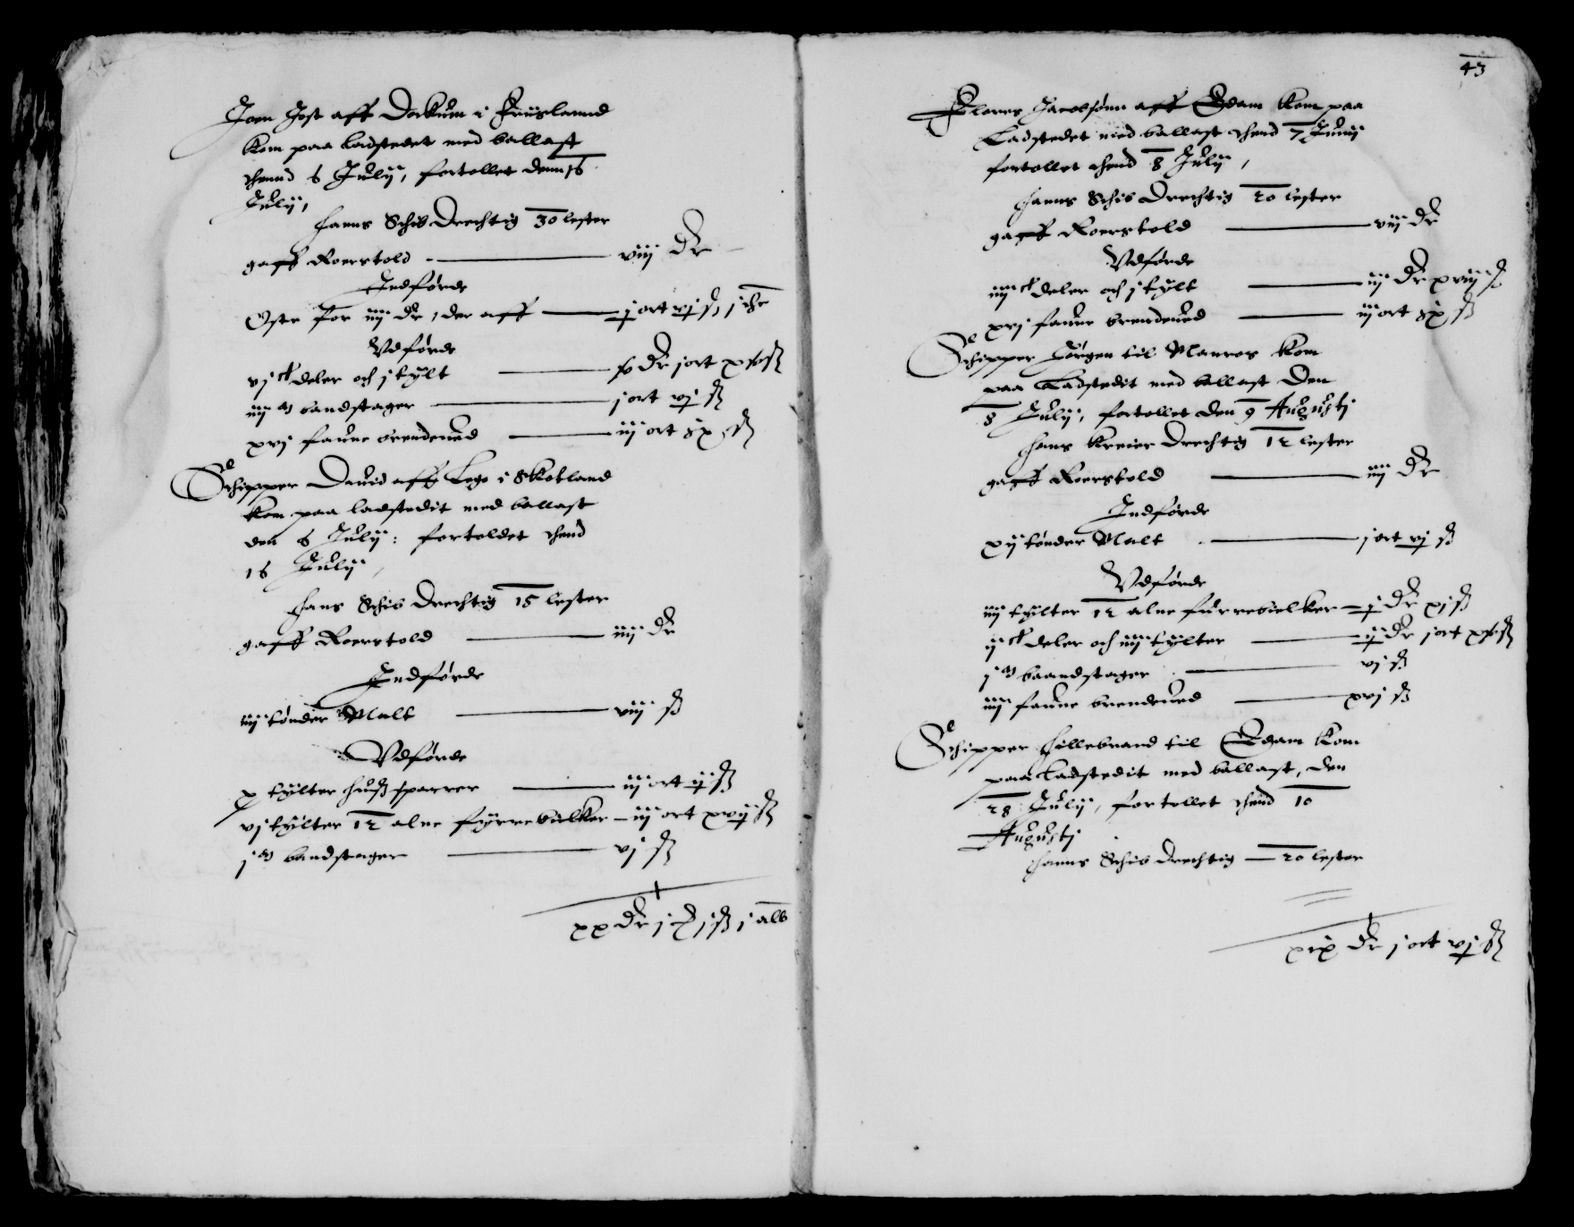 Joen Jost aff Dockum i Friislannd
kom paa ladstedet med ballast
thennd 6 Julij, fortollet denn 16
Julij,
hanns Schib Drechtig 30 lester
gaff Roerstold viij Dr
Indførde
Oste for iiij Dr, der aff j ort vj ß j
Vdførde
vj ck deler och j tylt
iiij m bandstager j ort vj ß
xvj faune brendeued iij ort ix ß
Schipper Dauid aff Lego i Skotland
kom paa ladstedit med ballast
den 6 Julij: fortoldet thend
16 Julij,
hans Schib Drechtig 15 lester
gaff Roerstold iiij Dr
Indførde
iiij tønder Malt viij ß
Vdførde
x tylter huß sparrer iij ort ij ß
vj tylter 12 alne fyrrebielker iij ort xvij ß
j m bandstager vj ß
xx Dr j j ß j alb
43
Clares Jacobsønn aff Edam kom paa
Ladstedet med ballast thend 7 Junij
fortollet thend 8 Julij,
hanns Schib Drechtig 20 lester
gaff Roerstold viij Dr
Vdførde
iiij ck deler och j tylt iij Dr xviij ß
xvj faune brendeued iij ort ix ß
Schipper Jørgen til Manres kom
paa Ladstedit med ballast Den
8 Julij, fortollet den 9 Augustj
hans kreier Drechtig 12 lester
gaff Roerstold iiij Dr
Indførde
xij tønder Malt j ort vj ß
Vdførde
iiij tylter 12 alne furrebielker j Dr xj ß
ij ck deler och iiij tylter ij Dr j ort
j m baandstager vj ß
iiij faune brendeued xvj ß
Schipper Hillebrand til Edam kom
paa Ladstedit med ballast, den
28 Julij, fortollet thend 10
Augustj
hanns Schib Drechtig 20 lester
xix Dr j ort vj ß